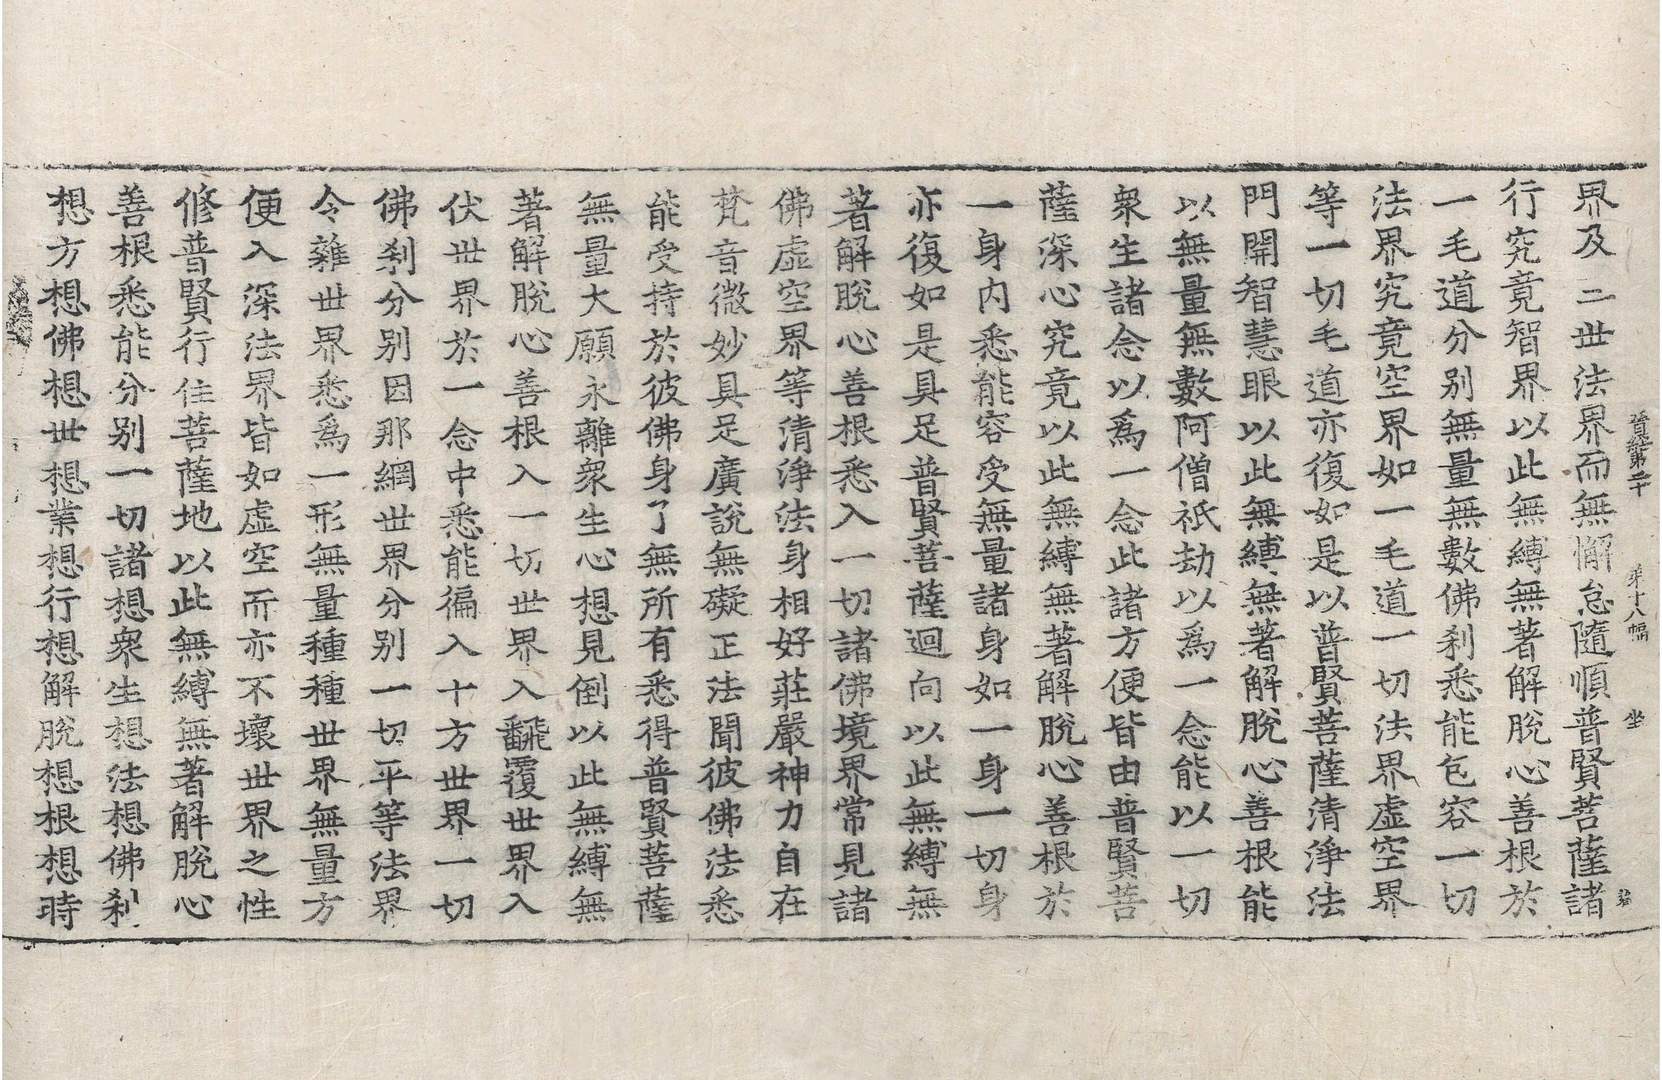 第二十 第十八幅 坐
界及二世法界而無懈怠隨順普賢菩薩諸
行究竟智界以此無縛無著解脫心善根於
一毛道分別無量無數佛刹悉能包容一切
法界究竟空界如一毛道一切法界虛空界
等一切毛道亦復如是以普賢菩薩清淨法
門開智慧眼以此無縛無著解脫心善根能
以無量無數阿僧祇劫以為一念能以一切
衆生諸念以為一念此諸方便皆由普賢菩
薩深心究竟以此無縛無著解脫心善根於
一身內悉能容受無量諸身如一身一切身
亦復如是具足普賢菩薩迴向以此無縛無
著解脫心善根悉入一切諸佛境界常見諸
佛虛空界等清淨法身相好莊嚴神力自在
梵音微妙具足廣說無礙正法聞彼佛法悉
能受持於彼佛身了無所有悉得普賢菩薩
無量大願永離衆生心想見倒以此無縛無
著解脫心善根入一切世界入翻覆世界入
伏世界於一念中悉能徧入十方世界一切
佛刹分別因那網世界分別一切平等法界
令雜世界悉為一形無量種種世界無量方
便入深法界皆如虛空而亦不壞世界之性
修普賢行住菩薩地以此無縛無著解脫心
善根悉能分別一切諸想衆生想法想佛刹
想方想佛想世想業想行想解脫想根想時